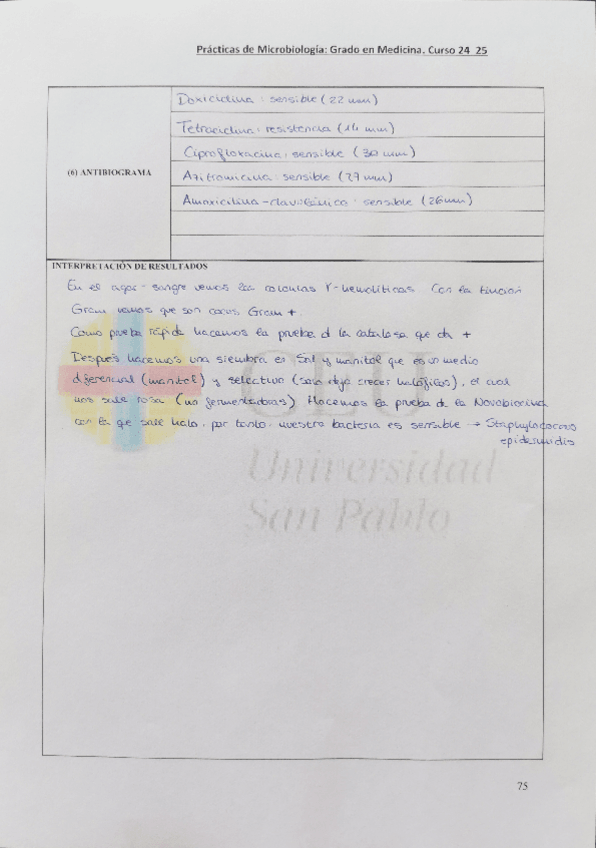 Prácticas de Microbiología: Grado en Medicina. Curso 24_25
Doxiciclina: sensible (22 mm)
Tetraciclina: resistencia (14 mm)
Ciprofloxacina: sensible (30 mm)
(6) ANTIBIOGRAMA
Azitromicina: sensible (27 mm)
Amoxicilina-clavulánico: sensible (26mm)
INTERPRETACIÓN DE RESULTADOS
En el agar-sangre vemos las colonias γ-hemolíticas. Con la tinción
Gram vemos que son cocos Gram +.
Como prueba rápida hacemos la prueba d la catalasa que da +
Después hacemos una siembra en Sal y manitol que es un medio
diferencial (manitol) y selectivo (solo deja crecer halófilos), el cual
nos sale rosa (no fermentadoras). Hacemos la prueba de la Novobiocina
con la que sale halo, por tanto, nuestra bacteria es sensible → Staphylococcus
epidermidis
CEU
Universidad
San Pablo
75